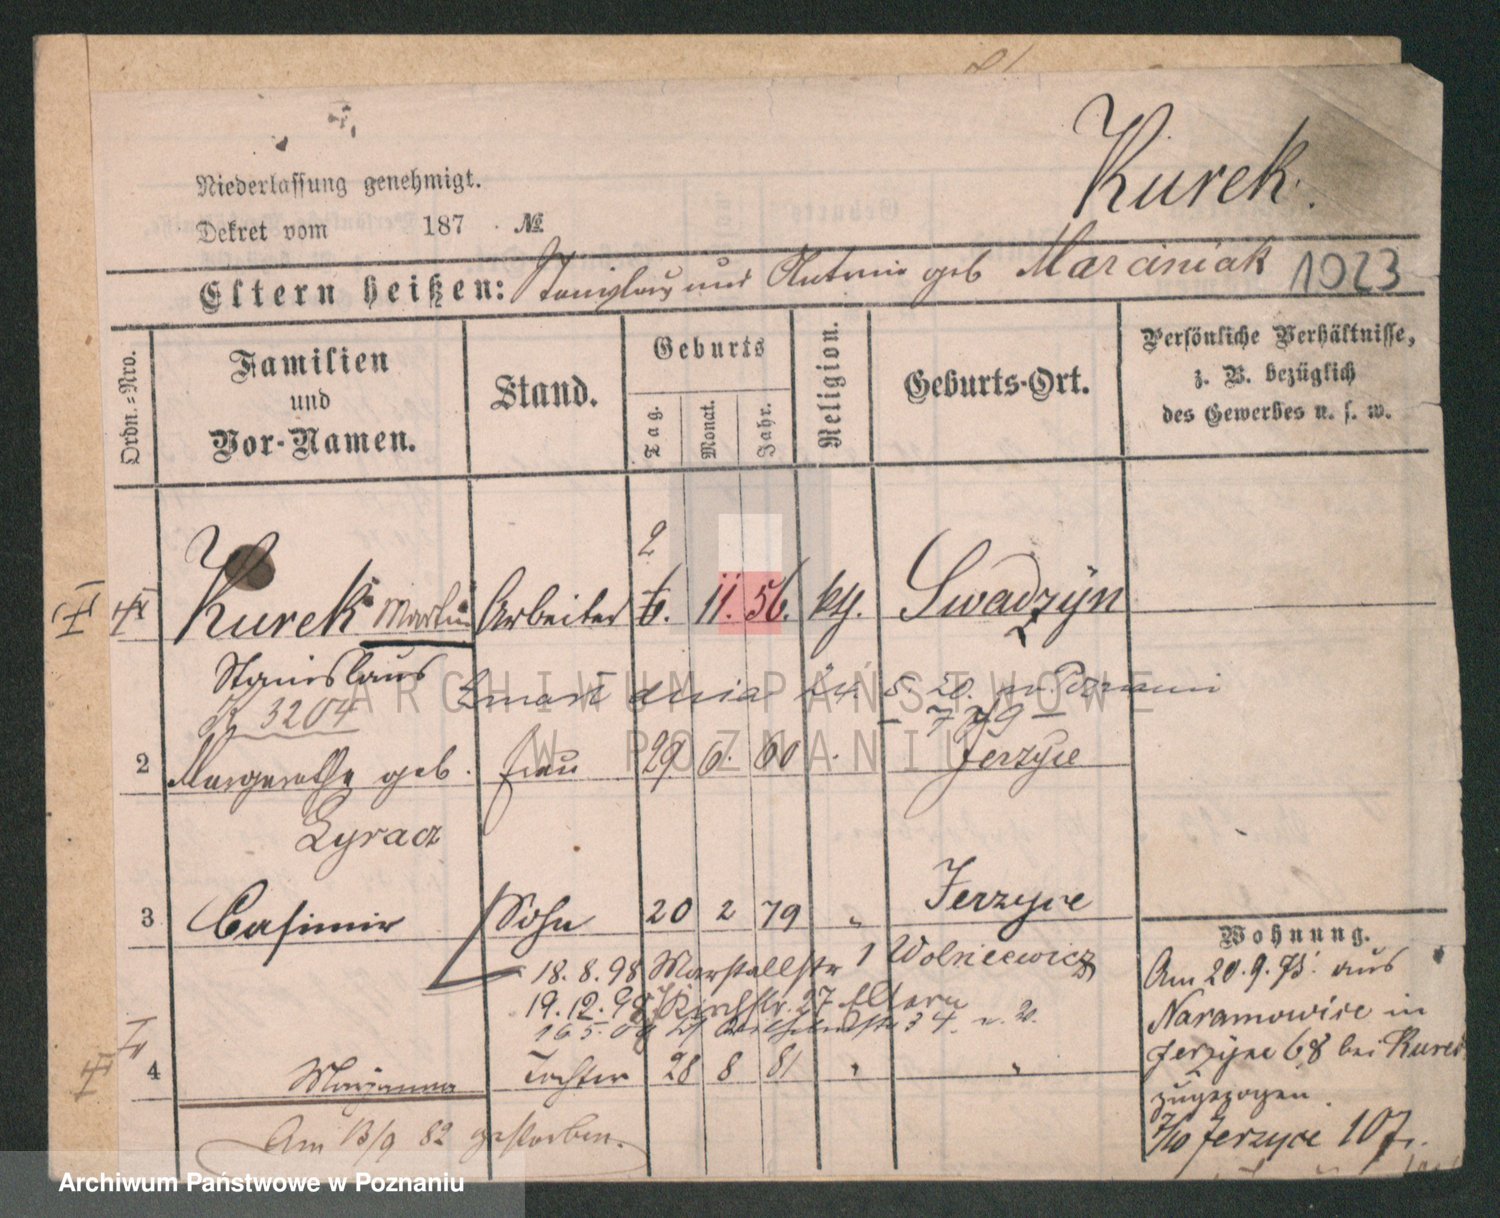 Niederlassung genehmigt.
Dekret vom 187 . №
Kurek.
Eltern heißen: Stanislaus und Antonie geb Marciniak 1023
Ordn.-Nro.
Familien
und
Vor-Namen.
Stand.
Geburts
Tag.
Monat.
Jahr.
Religion.
Geburts-Ort.
Persönliche Verhältnisse,
z. B. bezüglich
des Gewerbes u. s. w.
2
Kurek Martin Arbeiter 6. 11. 56. kg. Swadzyn
Stanislaus
3204
Zmarł dnia 24. 5. 20. w Poznaniu
2 Margarethe geb. Frau 29 6. 60 Jerzyce
Zyracz
3 Casimir Sohn 20 2 79 " Jerzyce
18.8.98 Marstallstr 1 Wolniewicz
19.12.98 Kirchstr. 27 Eltern
4 Marianna Tochter 28 8 81 " "
Am 13/9 82 gestorben.
Wohnung.
Am 20.9.75. aus
Naramowice in
Jerzyce 68 bei Kurek
zugezogen.
7/10 Jerzyce 107.
ARCHIWUM PAŃSTWOWE
W POZNANIU
Archiwum Państwowe w Poznaniu